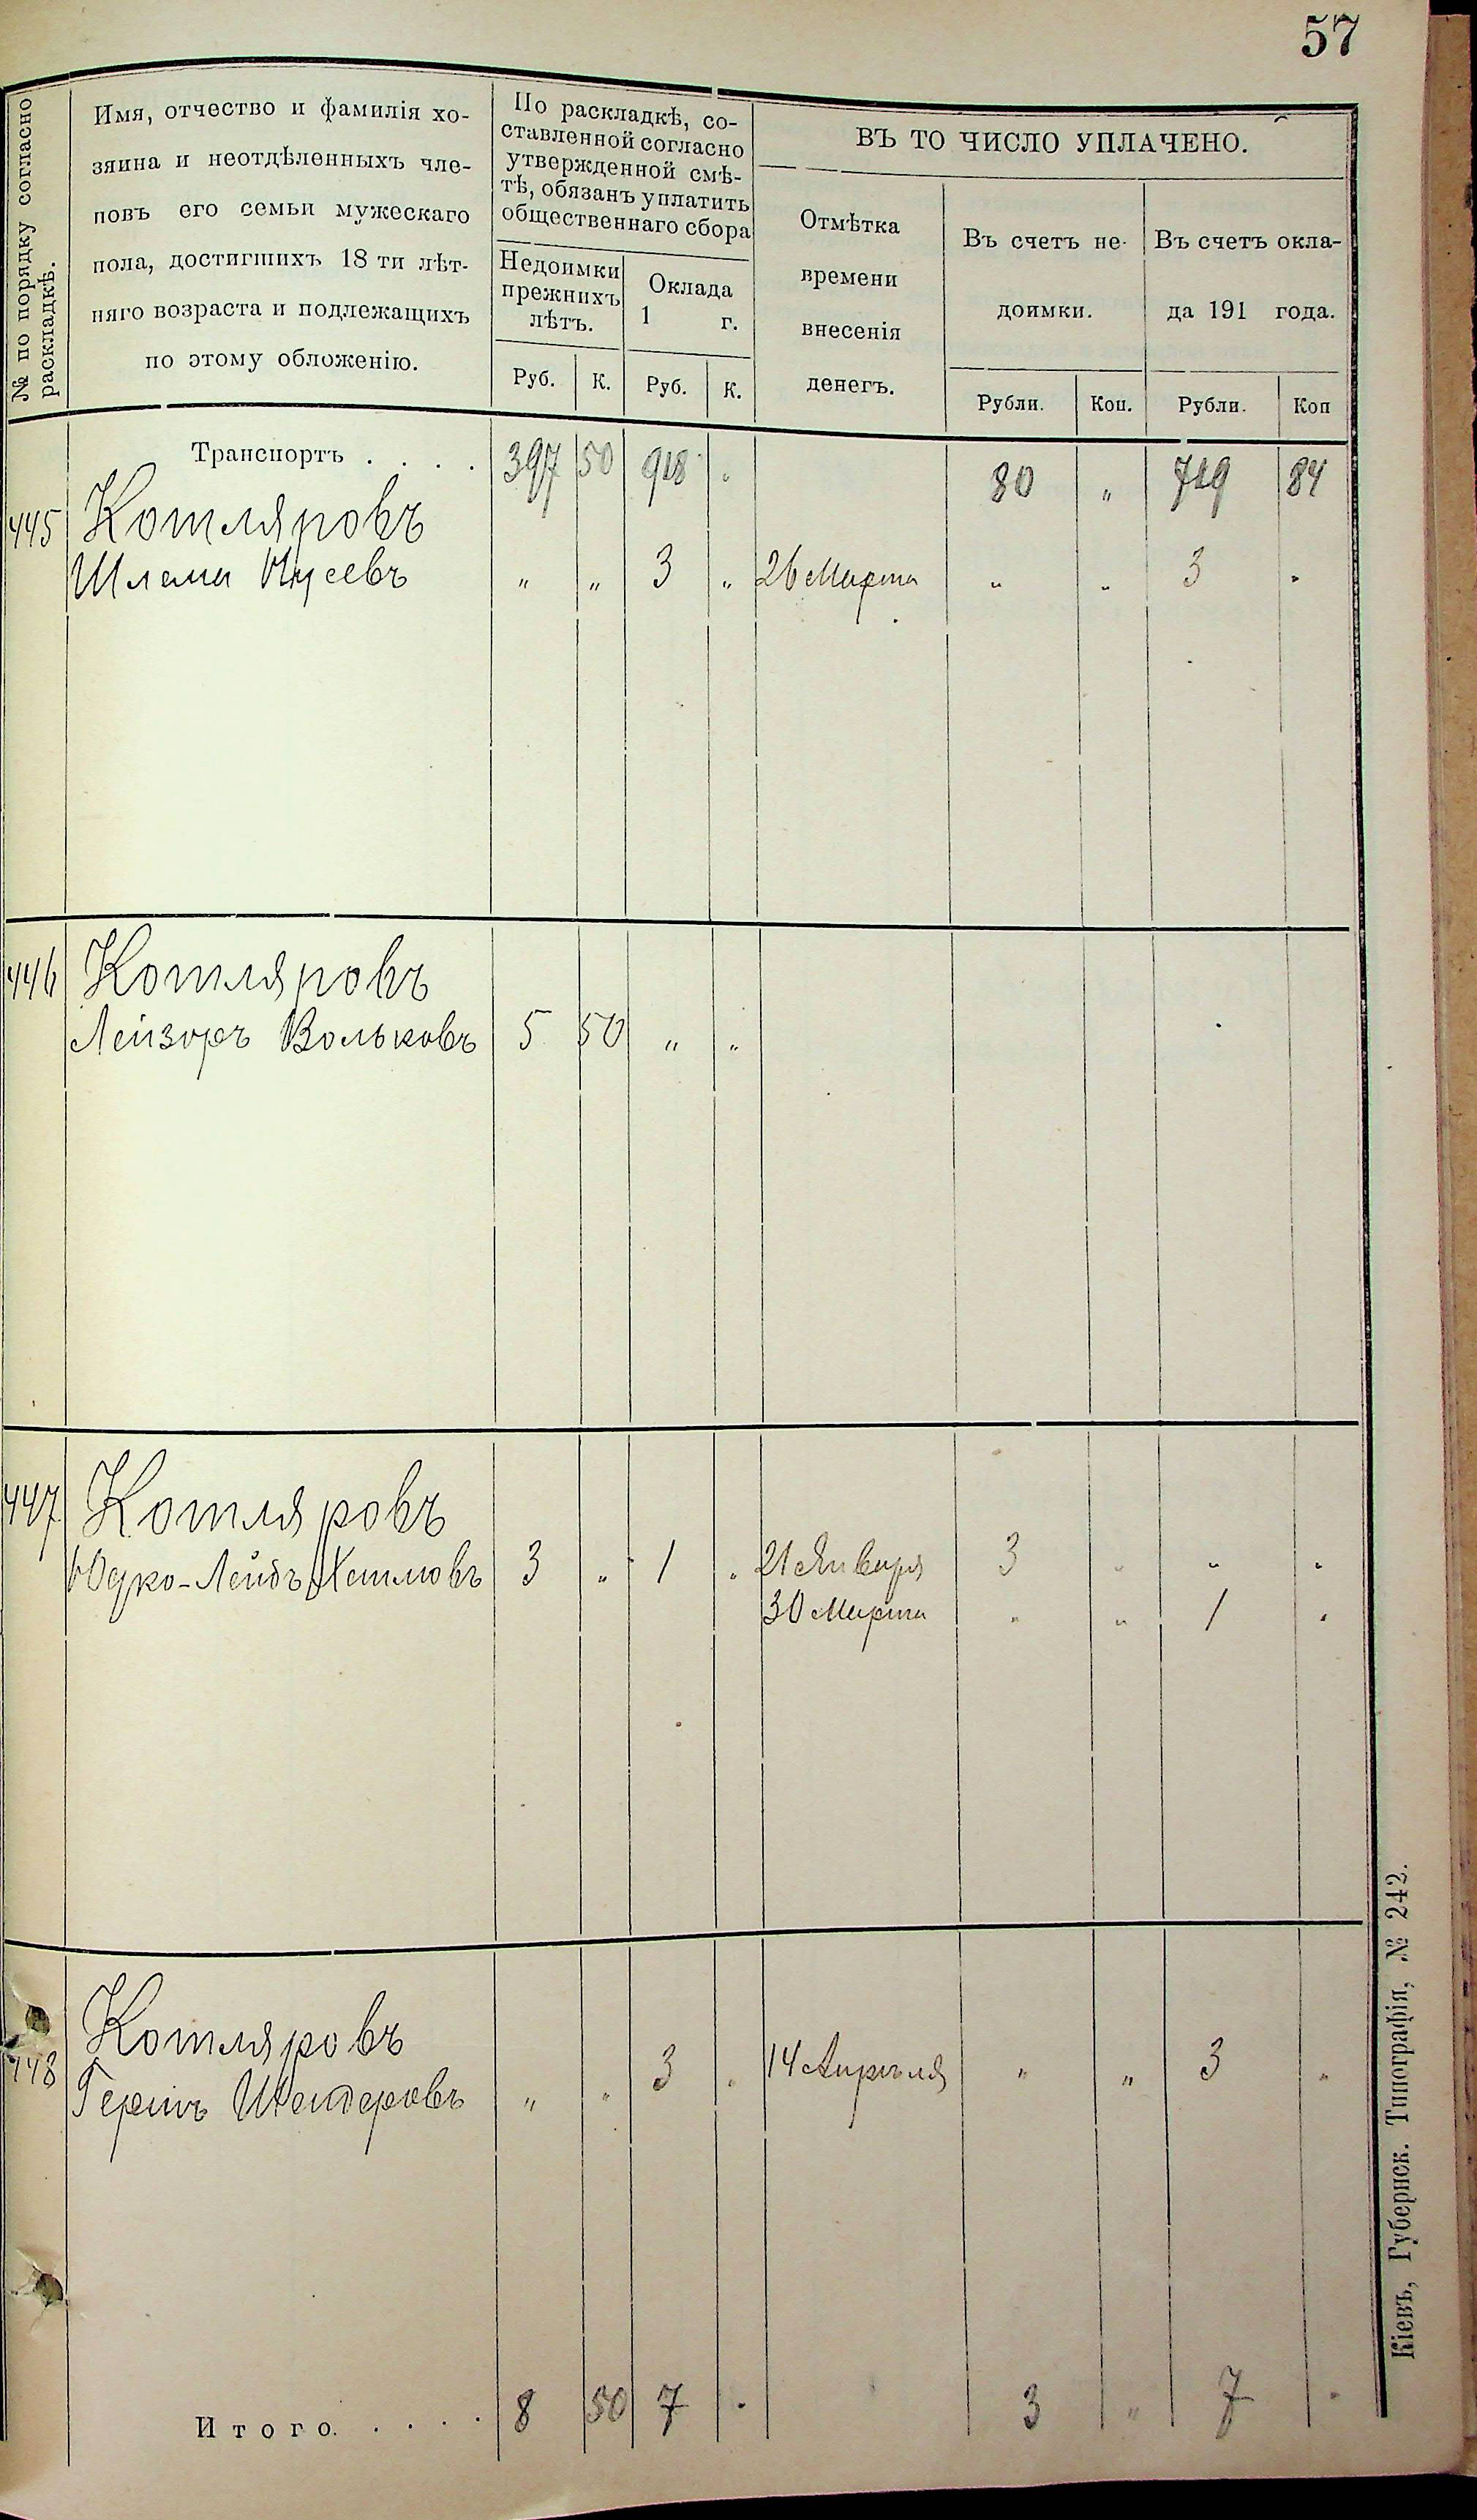 57
№ по порядку согласно
раскладкѣ.
Имя, отчество и фамилія хо-
зяина и неотдѣленныхъ чле-
новъ его семьи мужескаго
пола, достигшихъ 18 ти лѣт-
няго возраста и подлежащихъ
по этому обложенію.
По раскладкѣ, со-
ставленной согласно
утвержденной смѣ-
тѣ, обязанъ уплатить
общественнаго сбора
Недоимки
прежнихъ
лѣтъ.
Оклада
1 г.
Руб. К. Руб. К.
ВЪ ТО ЧИСЛО УПЛАЧЕНО.
Отмѣтка
времени
внесенія
денегъ.
Въ счетъ не-
доимки.
Въ счетъ окла-
да 191 года.
Рубли. Коп. Рубли. Коп
Транспортъ . . . . 397 50 918 „ 80 „ 84
445 Котляровъ
Шлема „ „ 3 „ 26 Марта „ „ 3 „
446 Котляровъ
Лейзоръ Вольковъ 5 50 „ „
447 Котляровъ
Юдко-Лейбъ 3 „ 1 „ 21 Января 3 „ „ „
30 Марта „ „ 1 „
448 Котляровъ
Гершъ Шендеровъ „ „ 3 „ 14 Апрѣля „ „ 3 „
Итого. . . . . 8 50 7 „ 3 „ 7 „
Кіевъ, Губернск. Типографія, № 242.